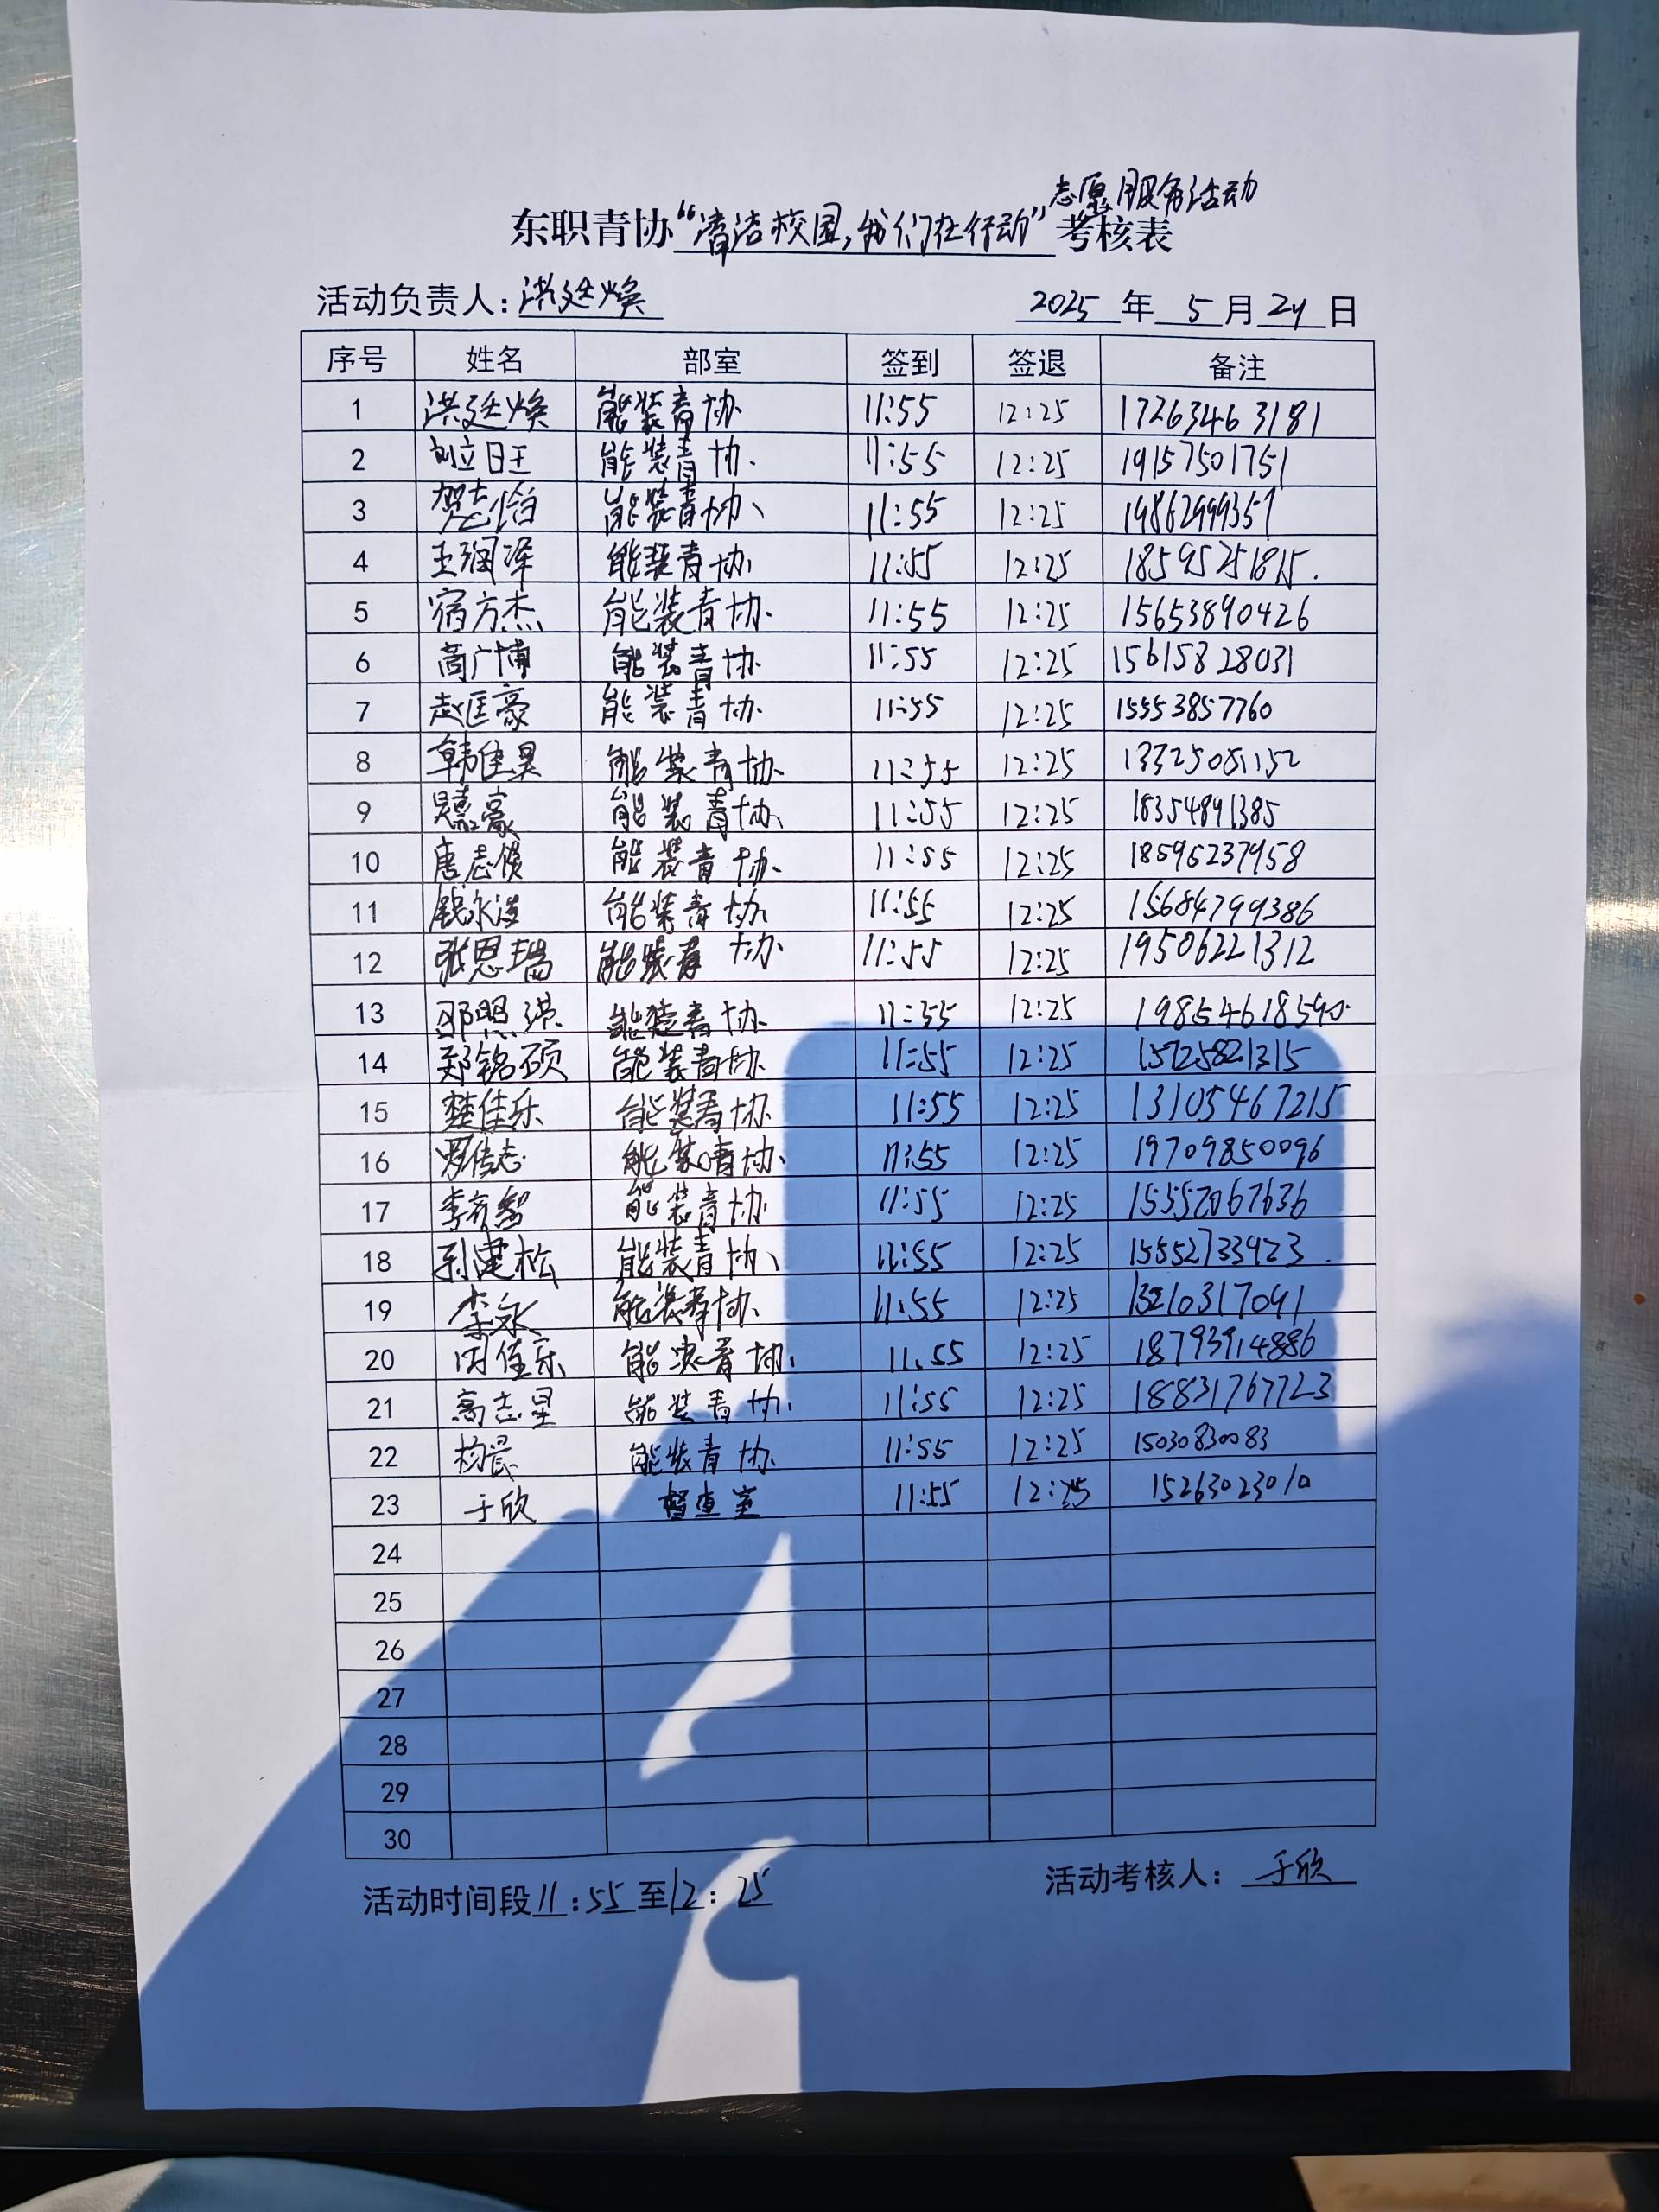 志愿服务活动
东职青协“清洁校园，我们在行动”考核表
活动负责人：洪廷焕 2025年5月24日
序号 姓名 部室 签到 签退 备注
1 洪廷焕 能装青协 11:55 12:25 17263463181
2 刘立旺 能装青协. 11:55 12:25 19157501751
3 贺志怡 能装青协 11:55 12:25 19862999357
4 王润泽 能装青协 11:55 12:25 18595251815.
5 宿方杰 能装青协 11:55 12:25 15653890426
6 高广博 能装青协 11:55 12:25 15615828031
7 赵匡豪 能装青协 11:55 12:25 15553857760
8 韩佳昊 能装青协 11:55 12:25 13325081152
9 豪 能装青协 11:55 12:25 18354891385
10 唐志 能装青协 11:55 12:25 18596237958
11 钱永 能装青协 11:55 12:25 15684799386
12 张恩瑞 能装青协 11:55 12:25 19506221312
13 能装青协 11:55 12:25 19854618590.
14 郑铭硕 能装青协 11:55 12:25 15725821315
15 佳乐 能装青协 11:55 12:25 13105467215
16 罗佳志 能装青协 11:55 12:25 19709850096
17 李 能装青协 11:55 12:25 15552067636
18 孙建松 能装青协 11:55 12:25 15552733923.
19 李永 能装青协 11:55 12:25 13210317091
20 佳乐 能装青协 11.55 12:25 18793914886
21 高志星 能装青协 11:55 12:25 18831767723
22 杨晨 能装青协 11:55 12:25 15030830083
23 于欣 督查室 11:55 12:25 15263023010
24
25
26
27
28
29
30
活动时间段11:55至12:25 活动考核人：于欣